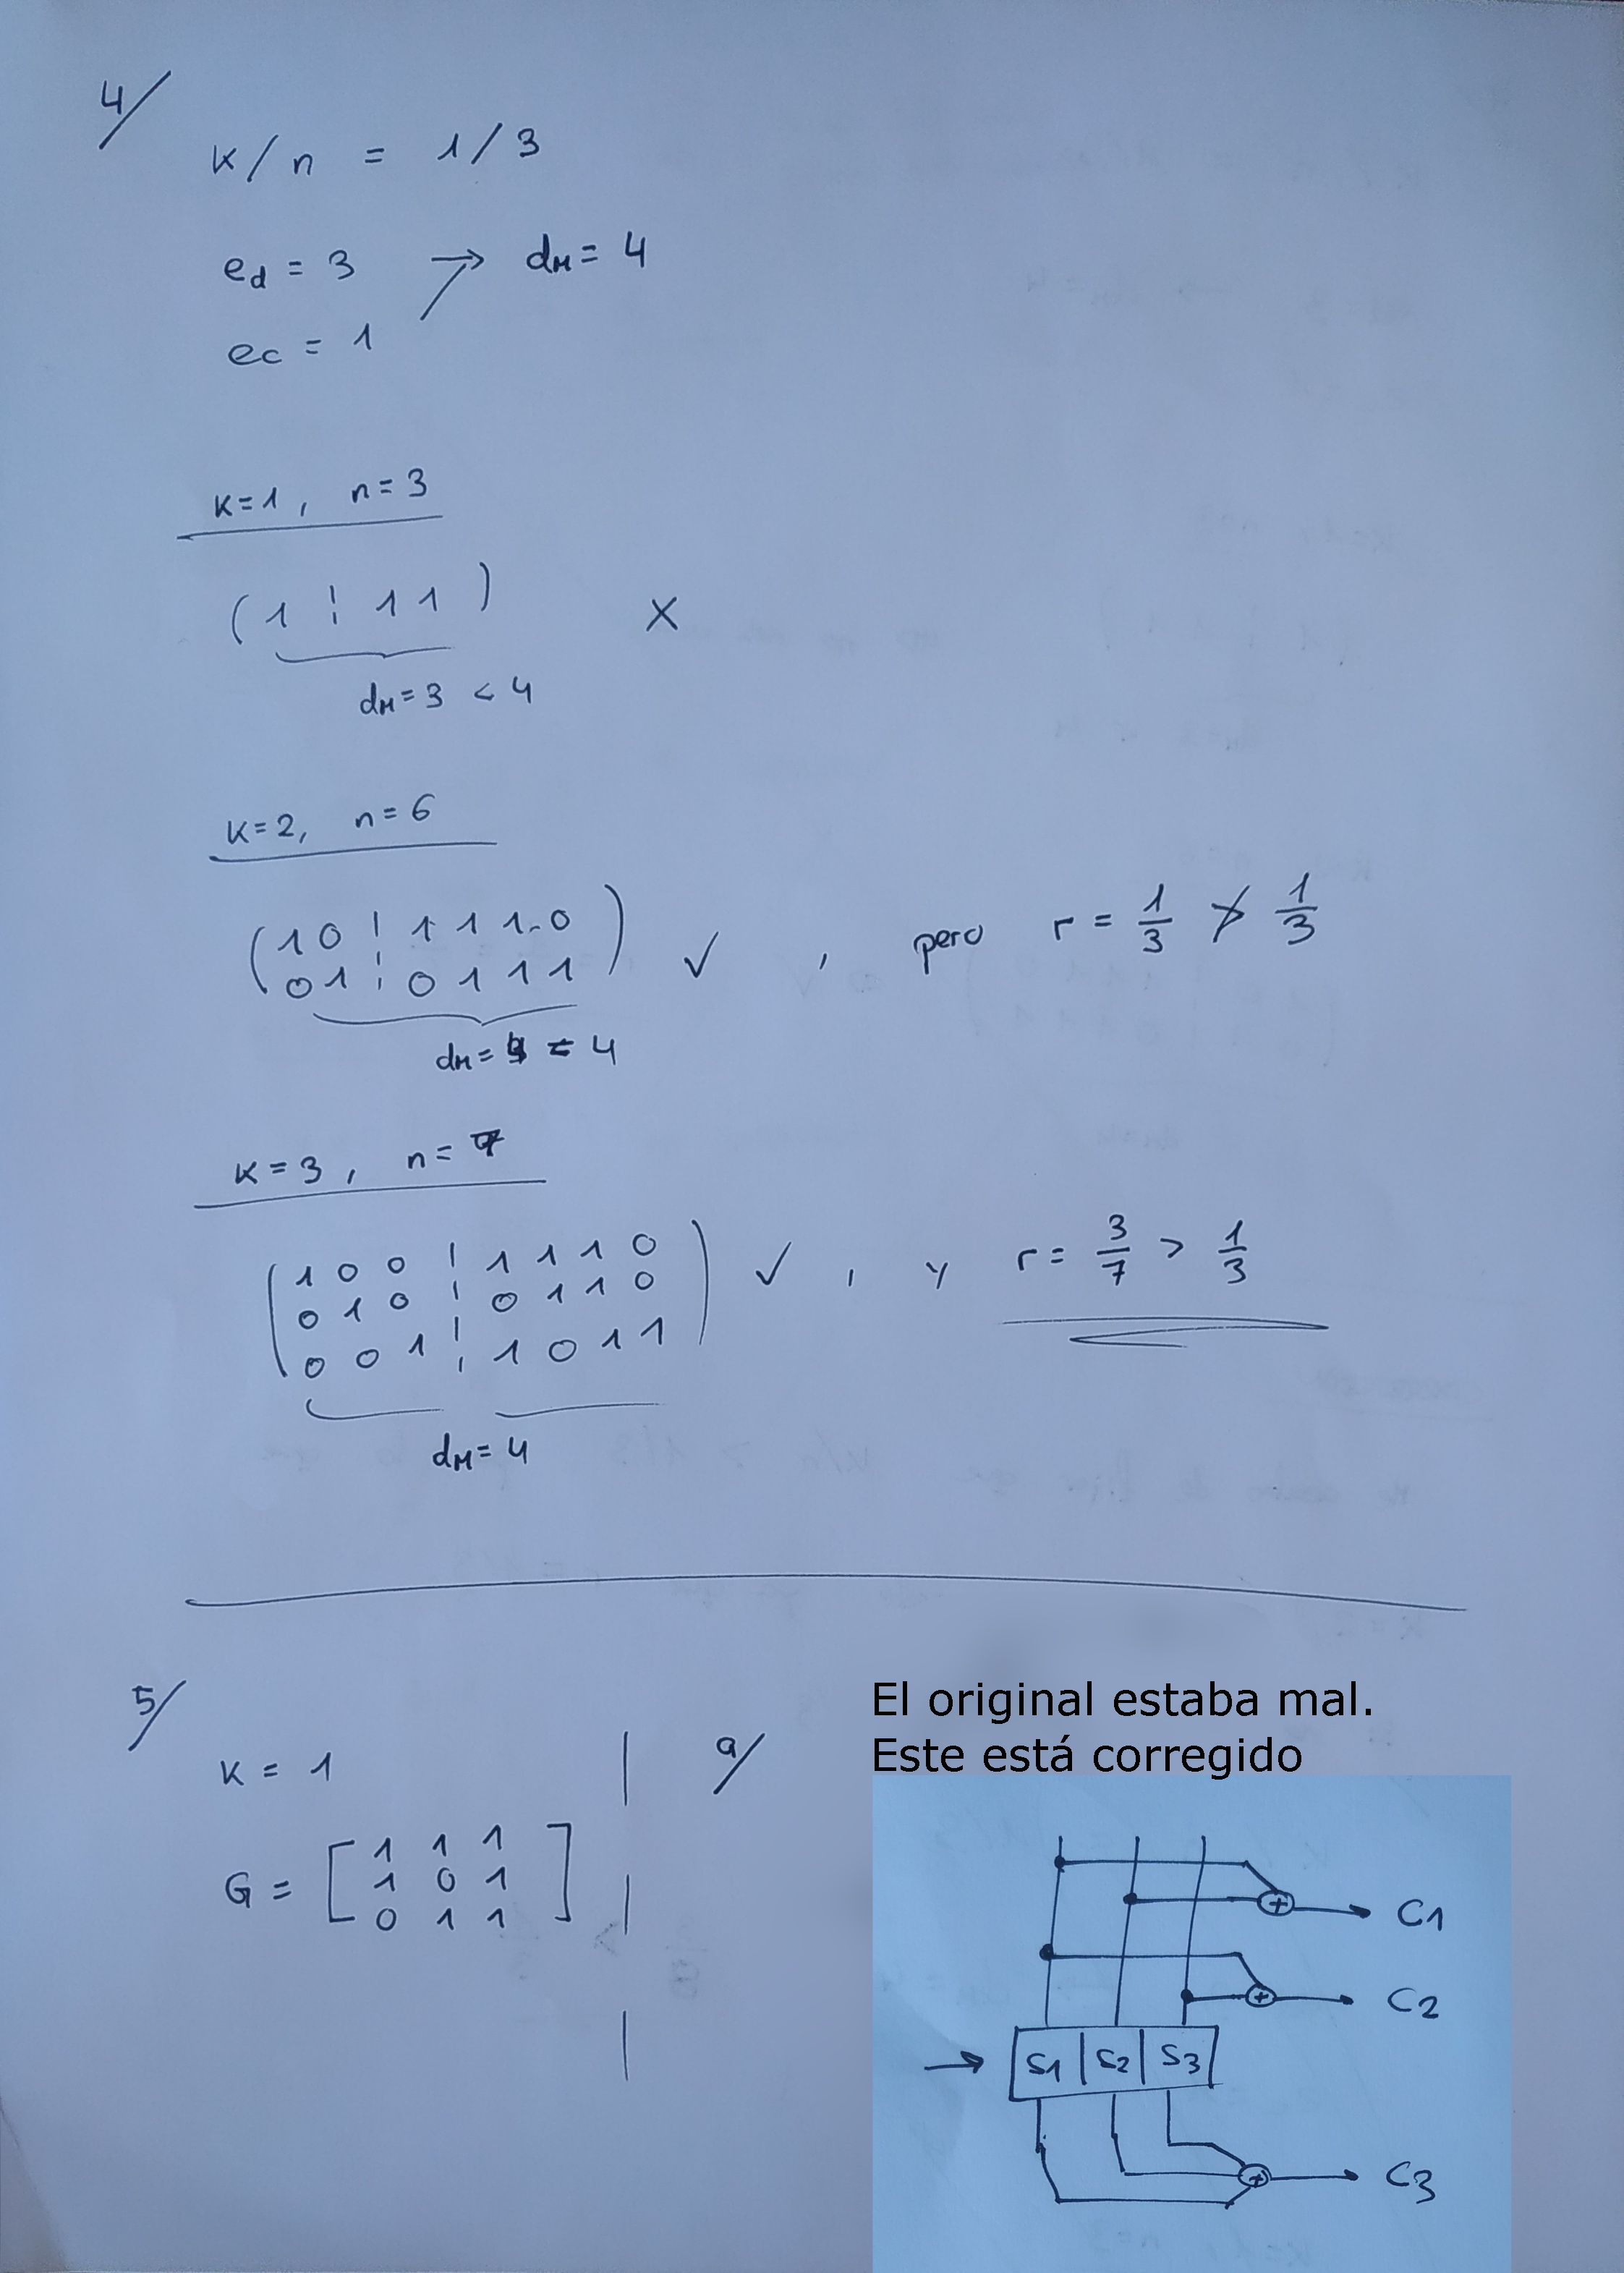 4/
k/n = 1/3
ed = 3 → dM = 4
ec = 1
k=1, n=3
(1 ¦ 1 1) X
dM = 3 < 4
k=2, n=6
(1 0 ¦ 1 1 1 0
0 1 ¦ 0 1 1 1) ✓, pero r = 1/3 ≯ 1/3
dM = 4 = 4
k=3, n=7
(1 0 0 ¦ 1 1 1 0
0 1 0 ¦ 0 1 1 0
0 0 1 ¦ 1 0 1 1) ✓, y r = 3/7 > 1/3
dM = 4
5/
k = 1
G = [1 1 1
1 0 1
0 1 1]
a/
El original estaba mal.
Este está corregido
+ C1
+ C2
→ S1 S2 S3
+ C3